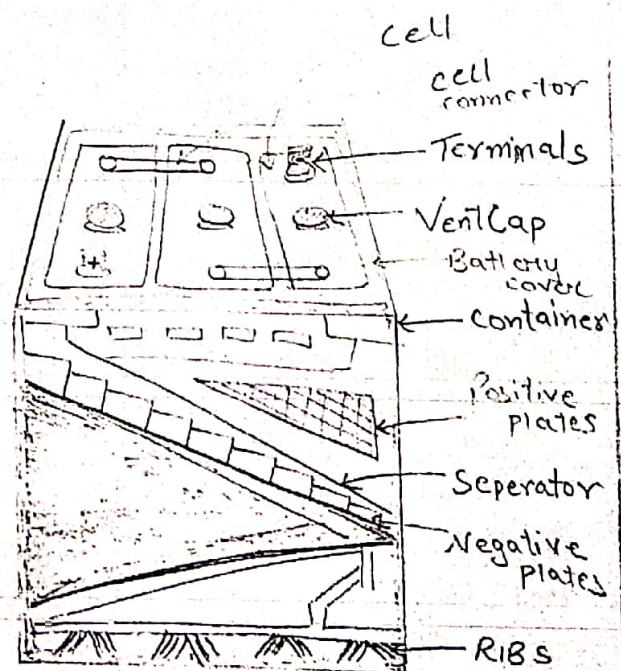 cell
cell
connector
Terminals
Vent Cap
Battery
cover
container
+
Positive
plates
Seperator
Negative
plates
RIBS